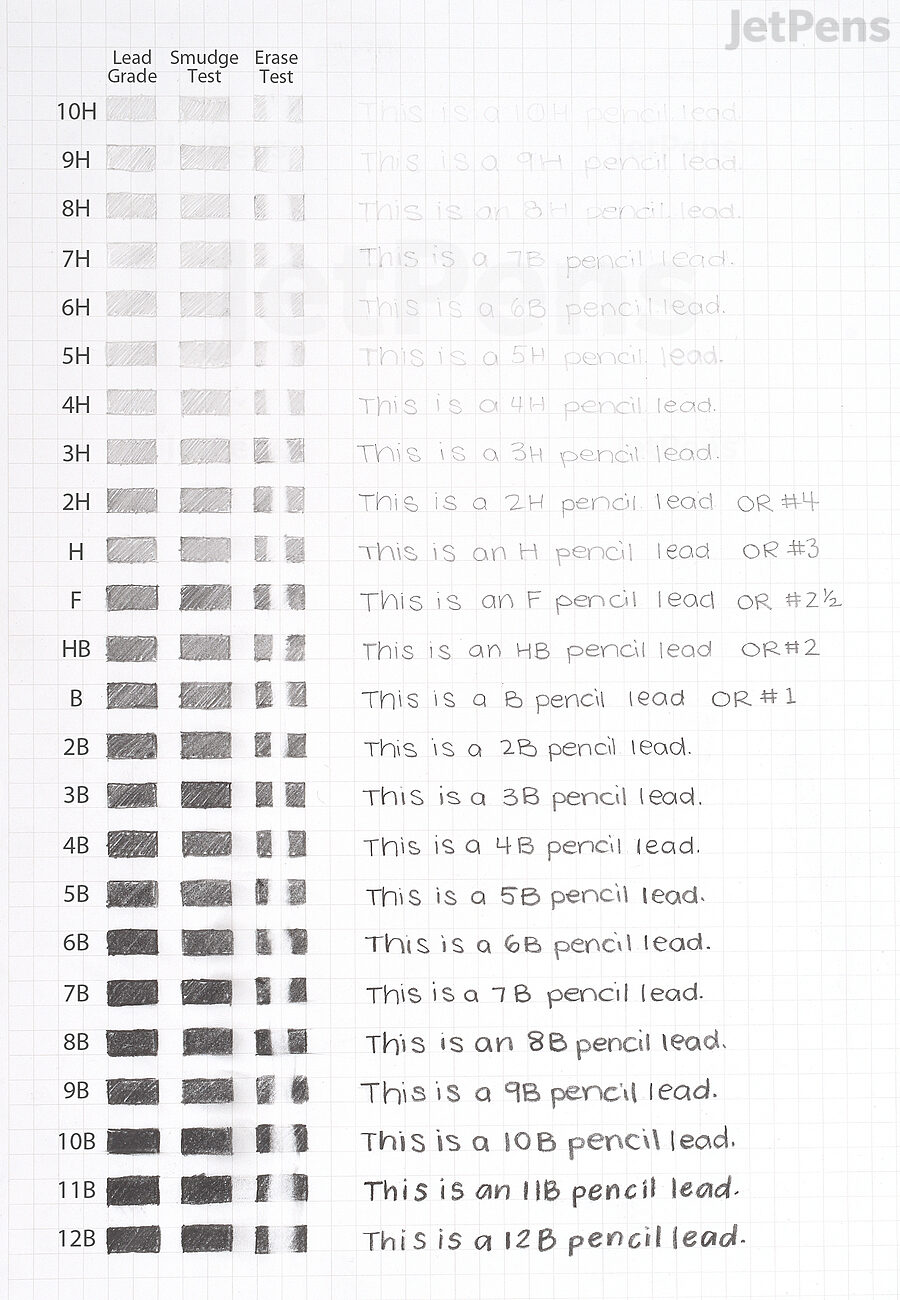 JetPens
Lead Grade Smudge Test Erase Test
10H This is a 10H pencil lead.
9H This is a 9H pencil lead.
8H This is an 8H pencil lead.
7H This is a 7B pencil lead.
JetPens
6H This is a 6B pencil lead.
5H This is a 5H pencil lead.
4H This is a 4H pencil lead.
3H This is a 3H pencil lead.
2H This is a 2H pencil lead OR #4
H This is an H pencil lead OR #3
F This is an F pencil lead OR #2½
HB This is an HB pencil lead OR #2
B This is a B pencil lead OR #1
2B This is a 2B pencil lead.
3B This is a 3B pencil lead.
4B This is a 4B pencil lead.
5B This is a 5B pencil lead.
6B This is a 6B pencil lead.
7B This is a 7B pencil lead.
8B This is an 8B pencil lead.
9B This is a 9B pencil lead.
10B This is a 10B pencil lead.
11B This is an 11B pencil lead.
12B This is a 12B pencil lead.